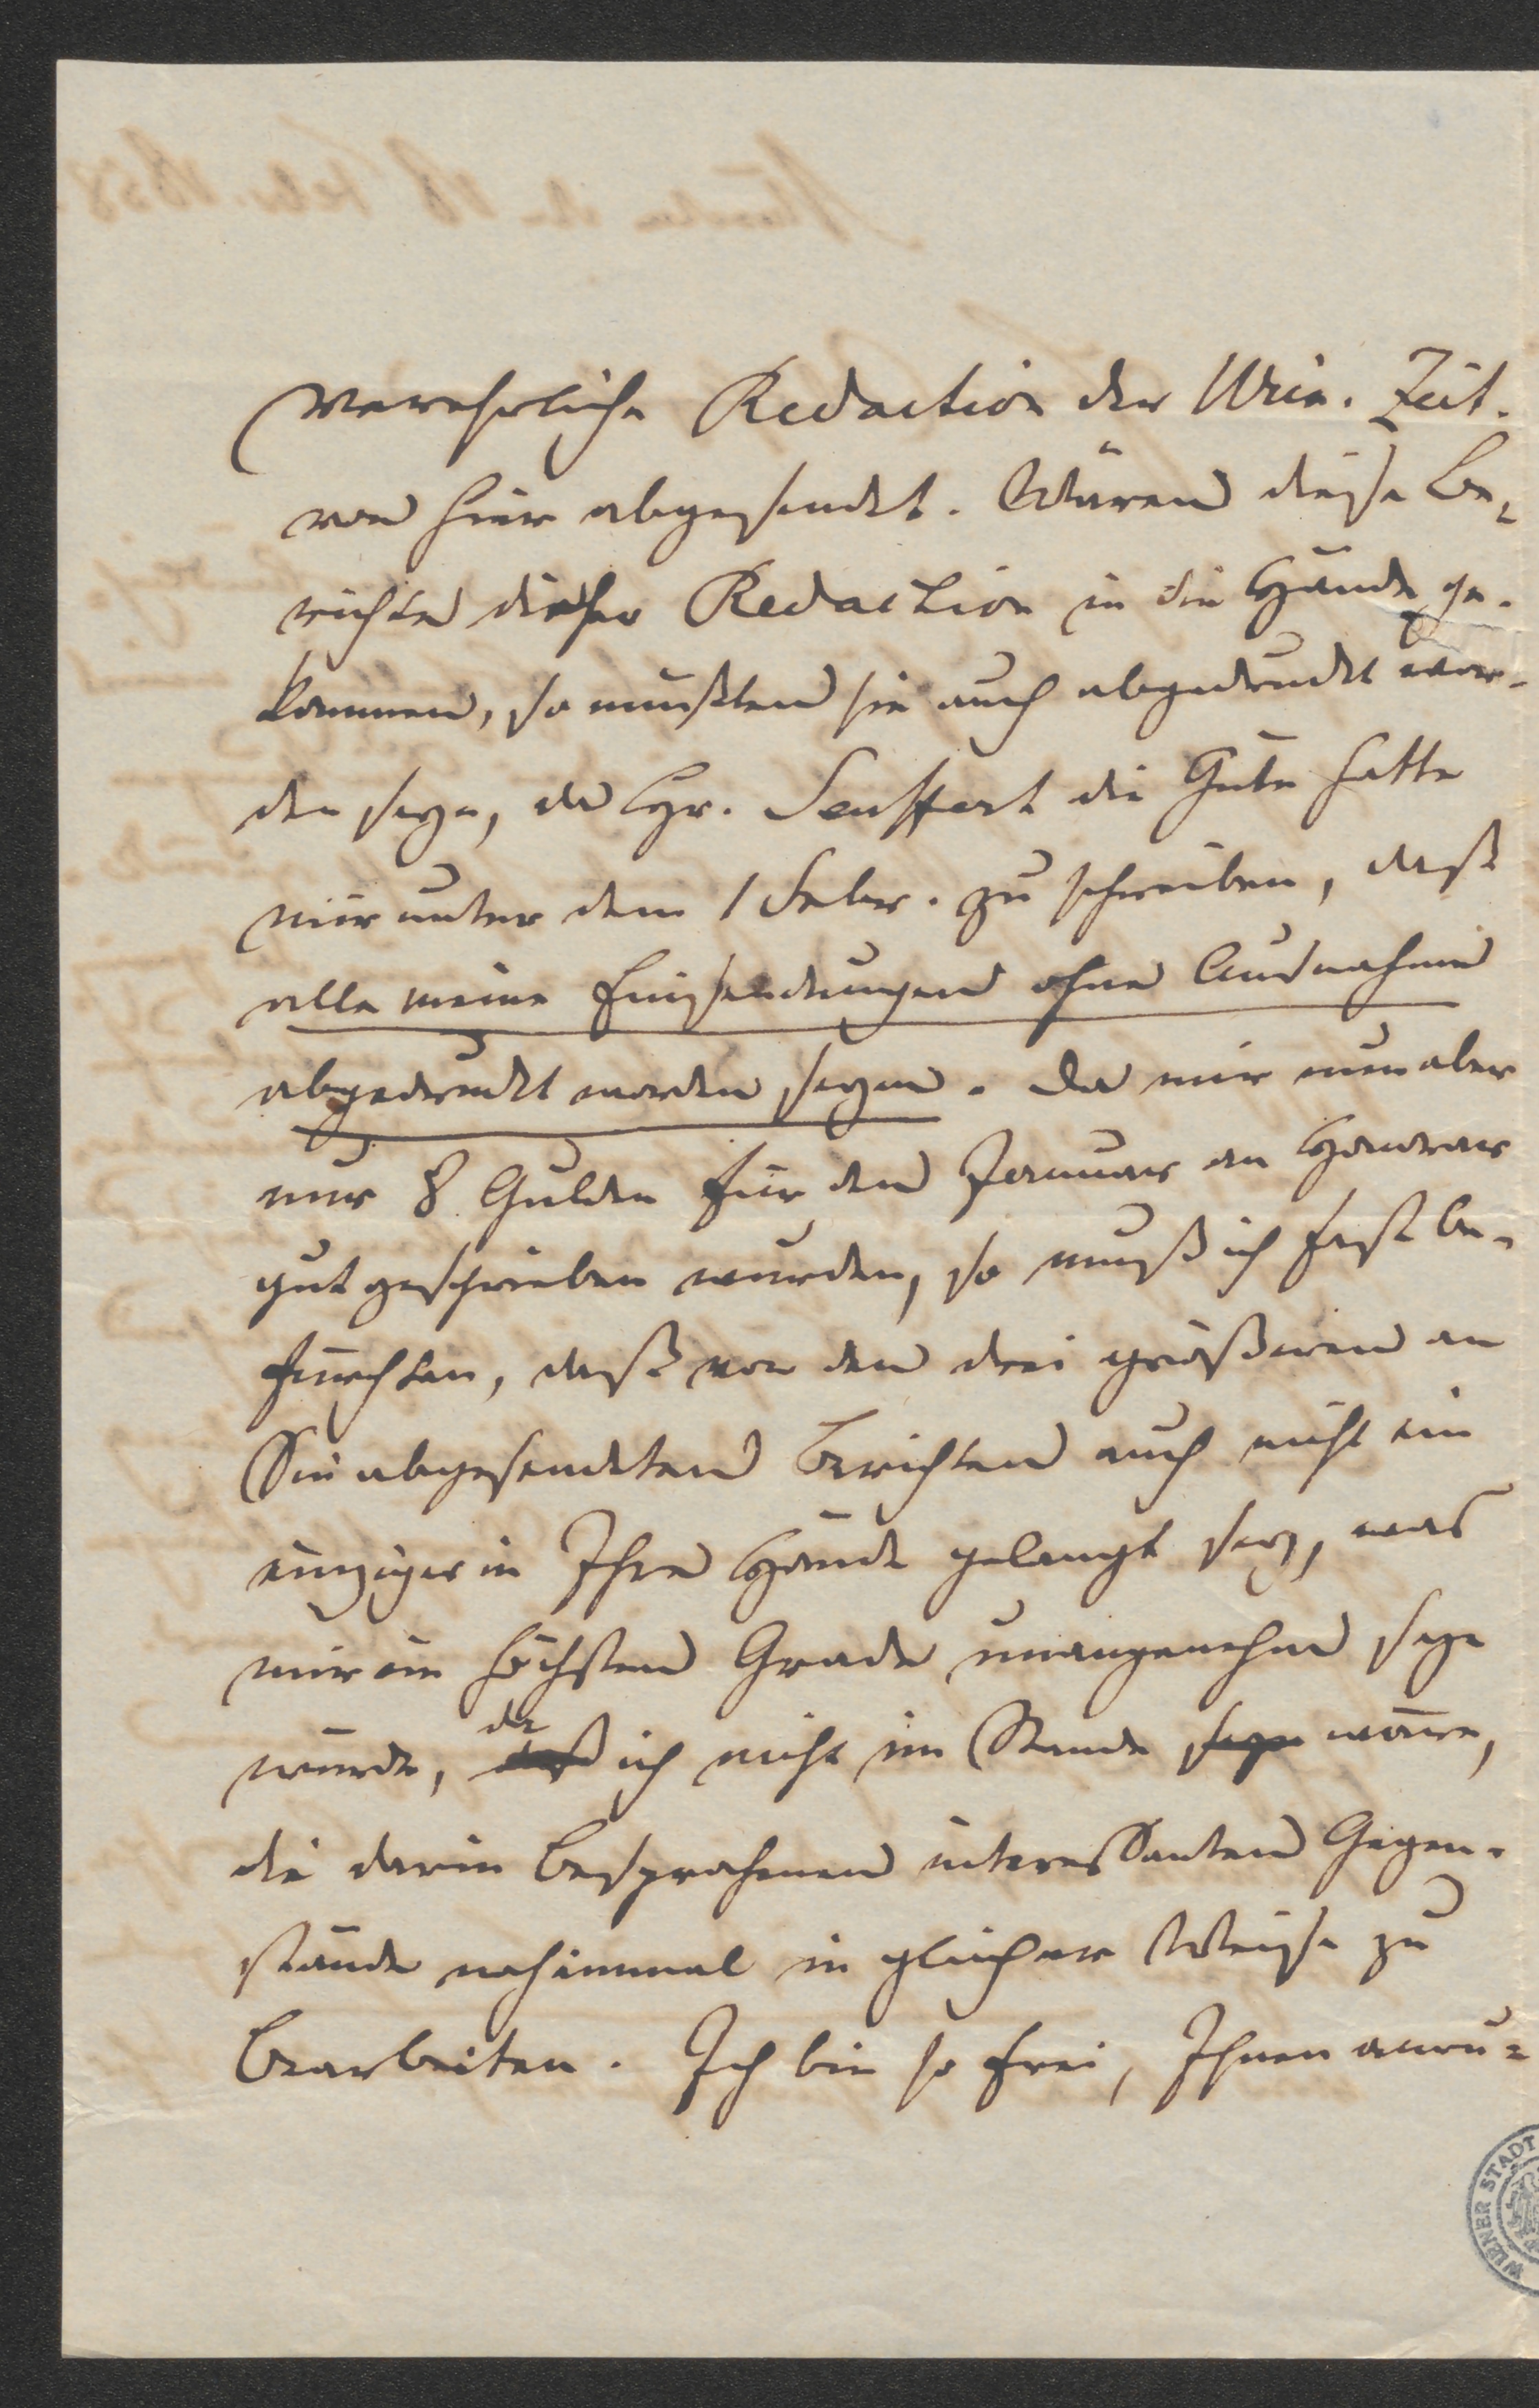 verehrliche Redaction der Wien. Zeit.
von hier abgesendet. Wären diese Be-
richte dieser Redaction in die Hände ge-
kommen, so müßten sie auch abgedruckt wor-
den seyn, da Hr. Seuffert die Güte hatte
mir unter dem 1 Febr. zu schreiben, daß
alle meine Einsendungen ohne Ausnahme
abgedruckt worden seyen. Da mir nun aber
nur 8 Gulden für den Januar an Honorar
gut geschrieben wurden, so muß ich fast be-
fürchten, daß von den drei größeren an
Sie abgesendeten Berichten auch nicht ein
einziger in Ihre Hände gelangt sey, was
mir im höchsten Grade unangenehm seyn
würde, da ich nicht im Stande seyn wäre,
die darin besprochenen interessanten Gegen-
stände nocheinmal in gleicher Weise zu
bearbeiten. Ich bin so frei, Ihnen anzu-
WIENER STADT